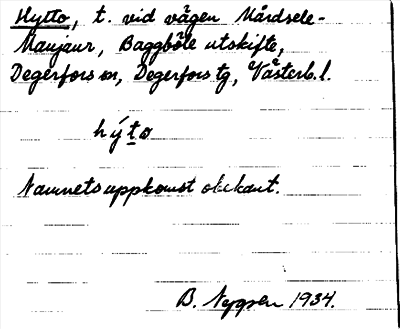 Hytto, t. vid vägen Mårdsele-
Maujaur, Baggböle utskifte,
Degerfors sn, Degerfors tg, Västerb. l.
hýto
Namnets uppkomst obekant.
B. Nygren 1934.